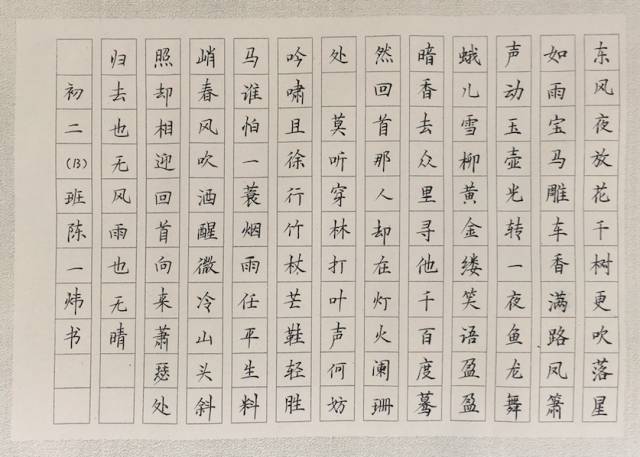 东风夜放花千树更吹落星
如雨宝马雕车香满路凤箫
声动玉壶光转一夜鱼龙舞
蛾儿雪柳黄金缕笑语盈盈
暗香去众里寻他千百度蓦
然回首那人却在灯火阑珊
处 莫听穿林打叶声何坊
吟啸且徐行竹杖芒鞋轻胜
马谁怕一蓑烟雨任平生料
峭春风吹洒醒微冷山头斜
照却相迎回首向来萧瑟处
归去也无风雨也无晴
初二(13)班陈一炜书